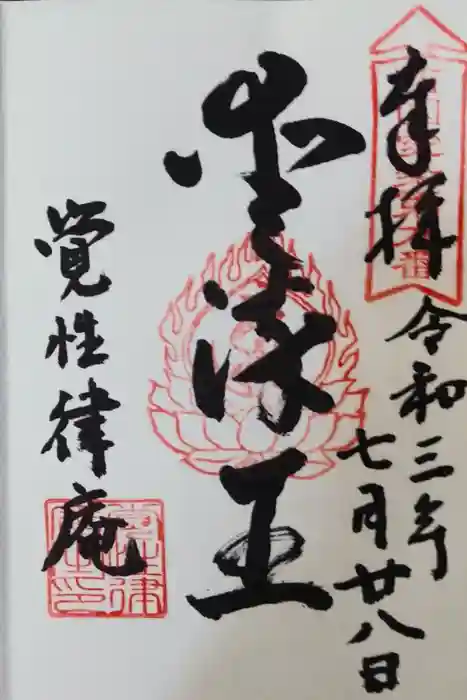 奉拝
令和三年
七月廿八日
愛染王
覺性律庵